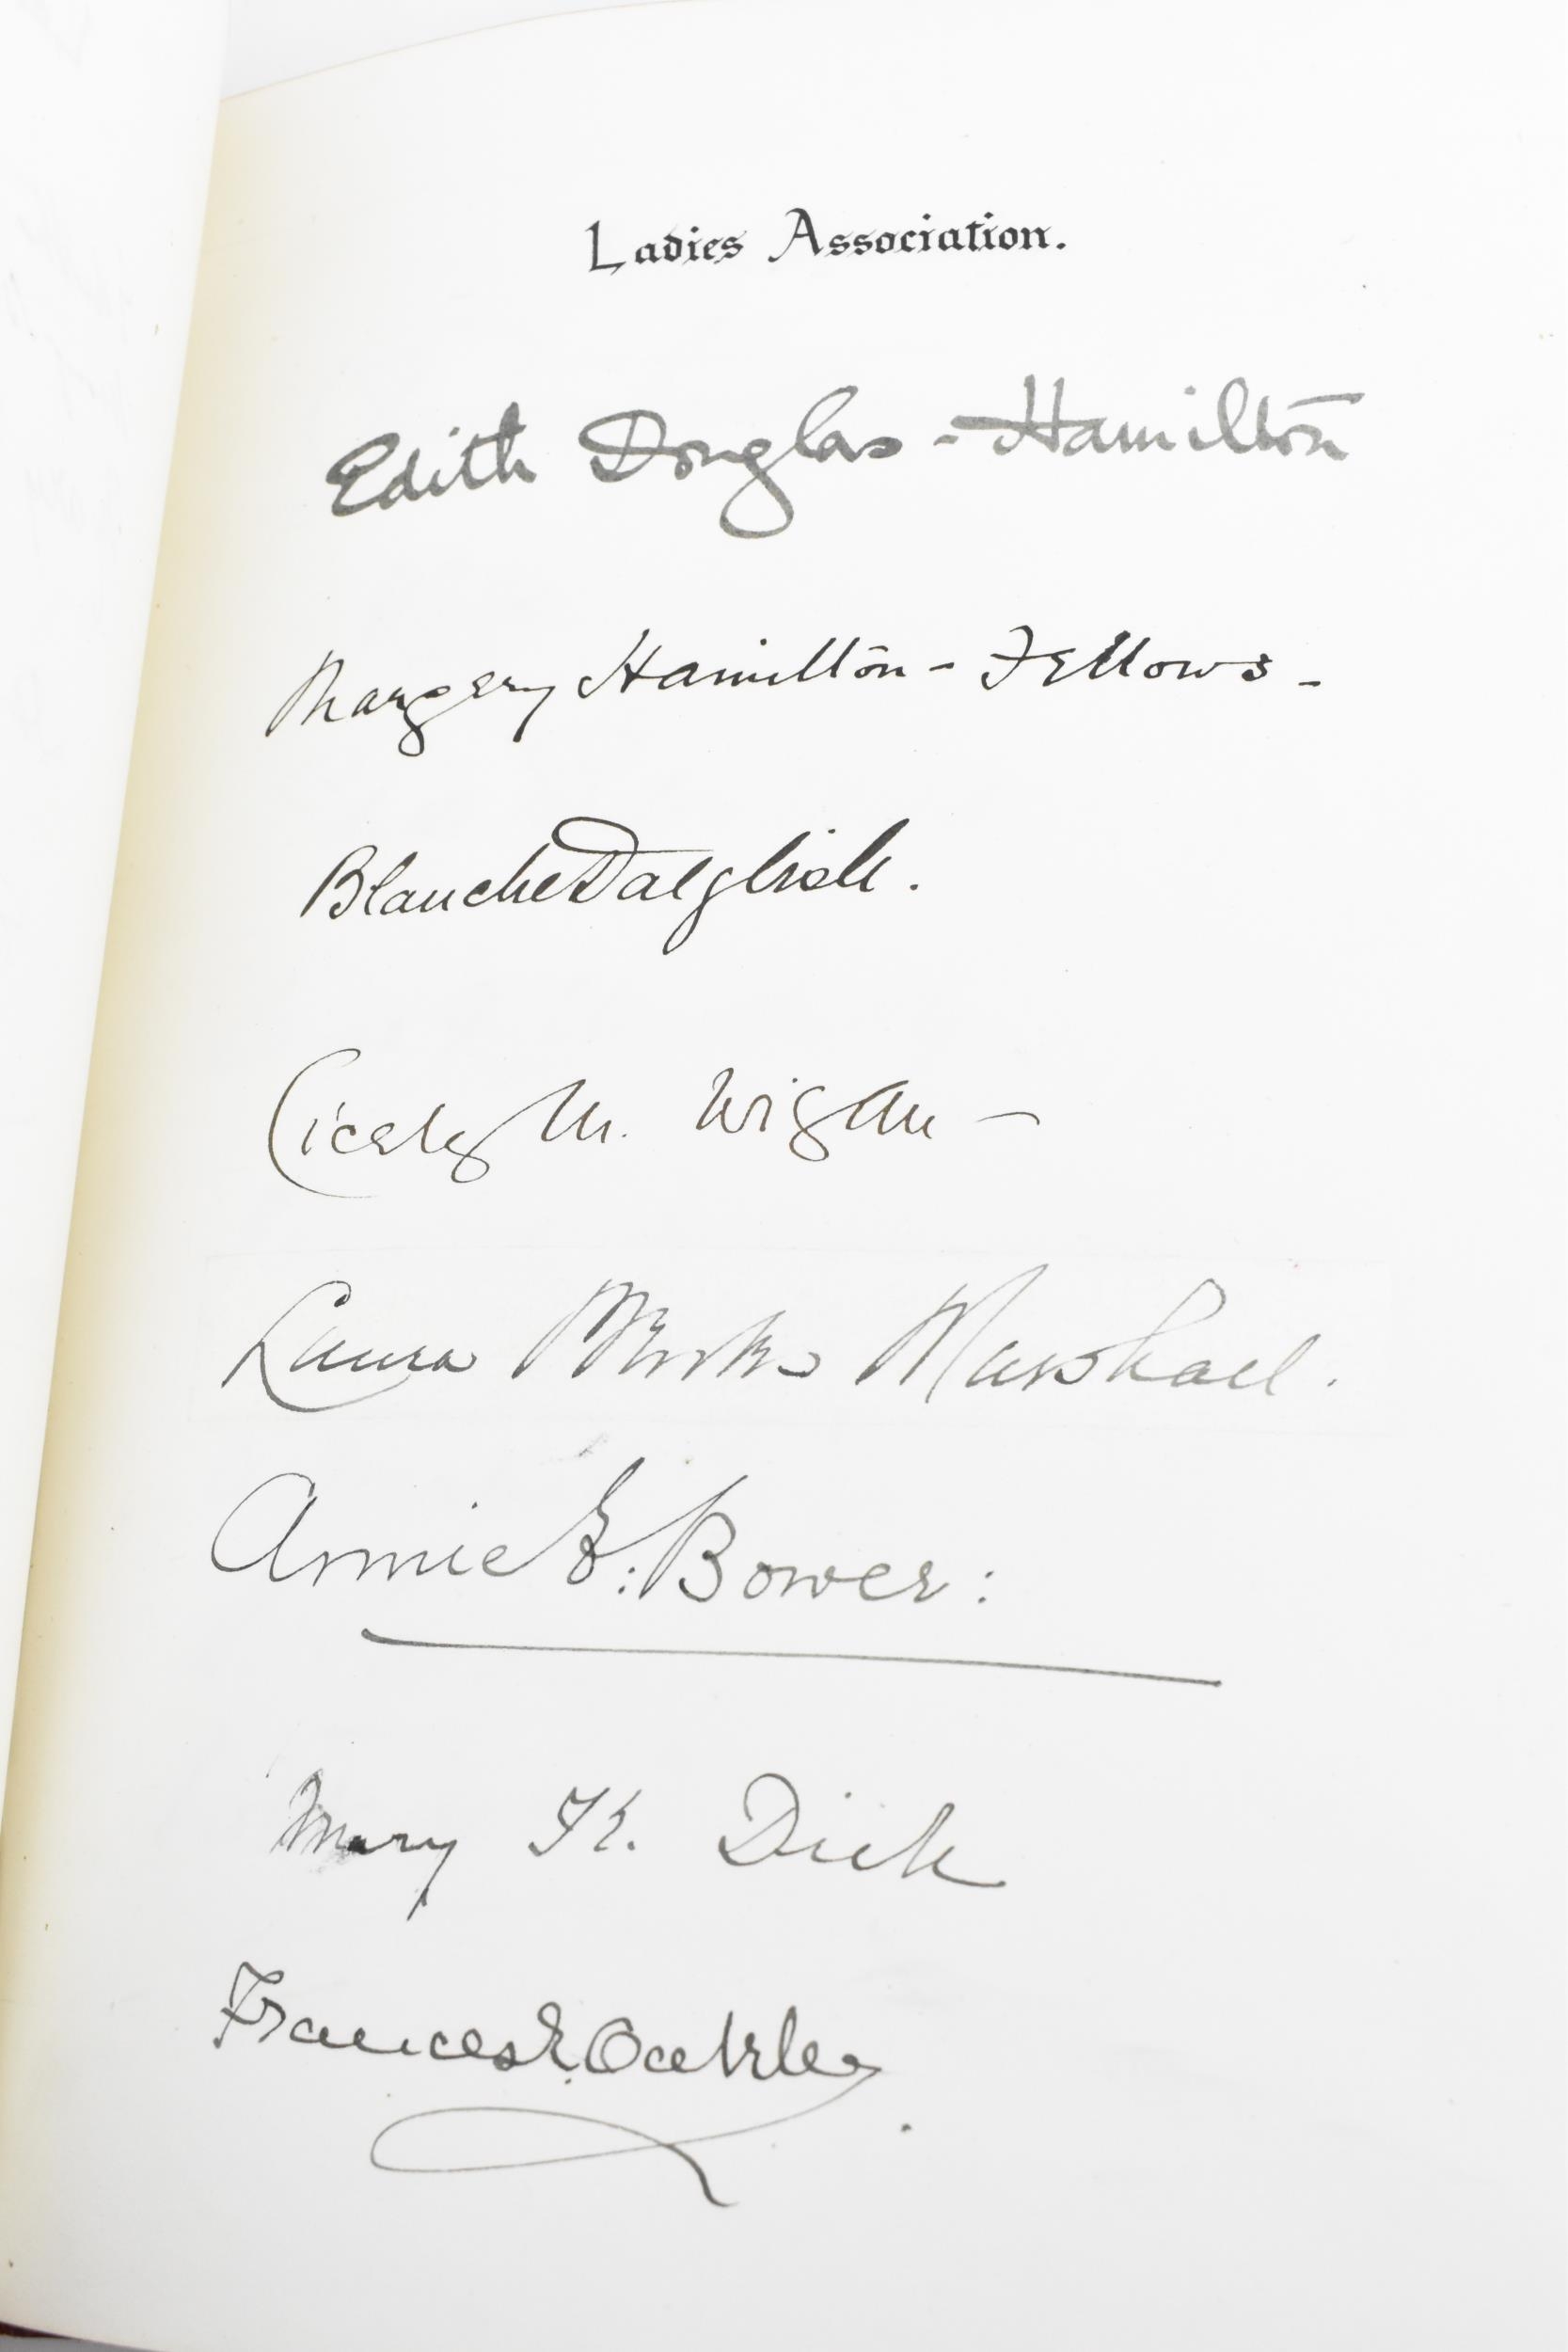 Ladies Association.
Edith Douglas-Hamilton
Margery Hamilton-Fellows-
Blanche Dalglish.
Cicely M. Wigan -
Laura Marshall.
Annie E: Bower:
Mary K. Dick
Frances E. Oakley